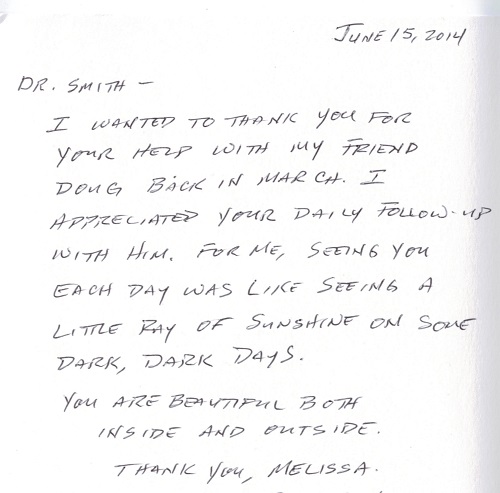 JUNE 15, 2014
DR. SMITH -
I WANTED TO THANK YOU FOR
YOUR HELP WITH MY FRIEND
DOUG BACK IN MARCH. I
APPRECIATED YOUR DAILY FOLLOW-UP
WITH HIM. FOR ME, SEEING YOU
EACH DAY WAS LIKE SEEING A
LITTLE RAY OF SUNSHINE ON SOME
DARK, DARK DAYS.
YOU ARE BEAUTIFUL BOTH
INSIDE AND OUTSIDE.
THANK YOU, MELISSA.